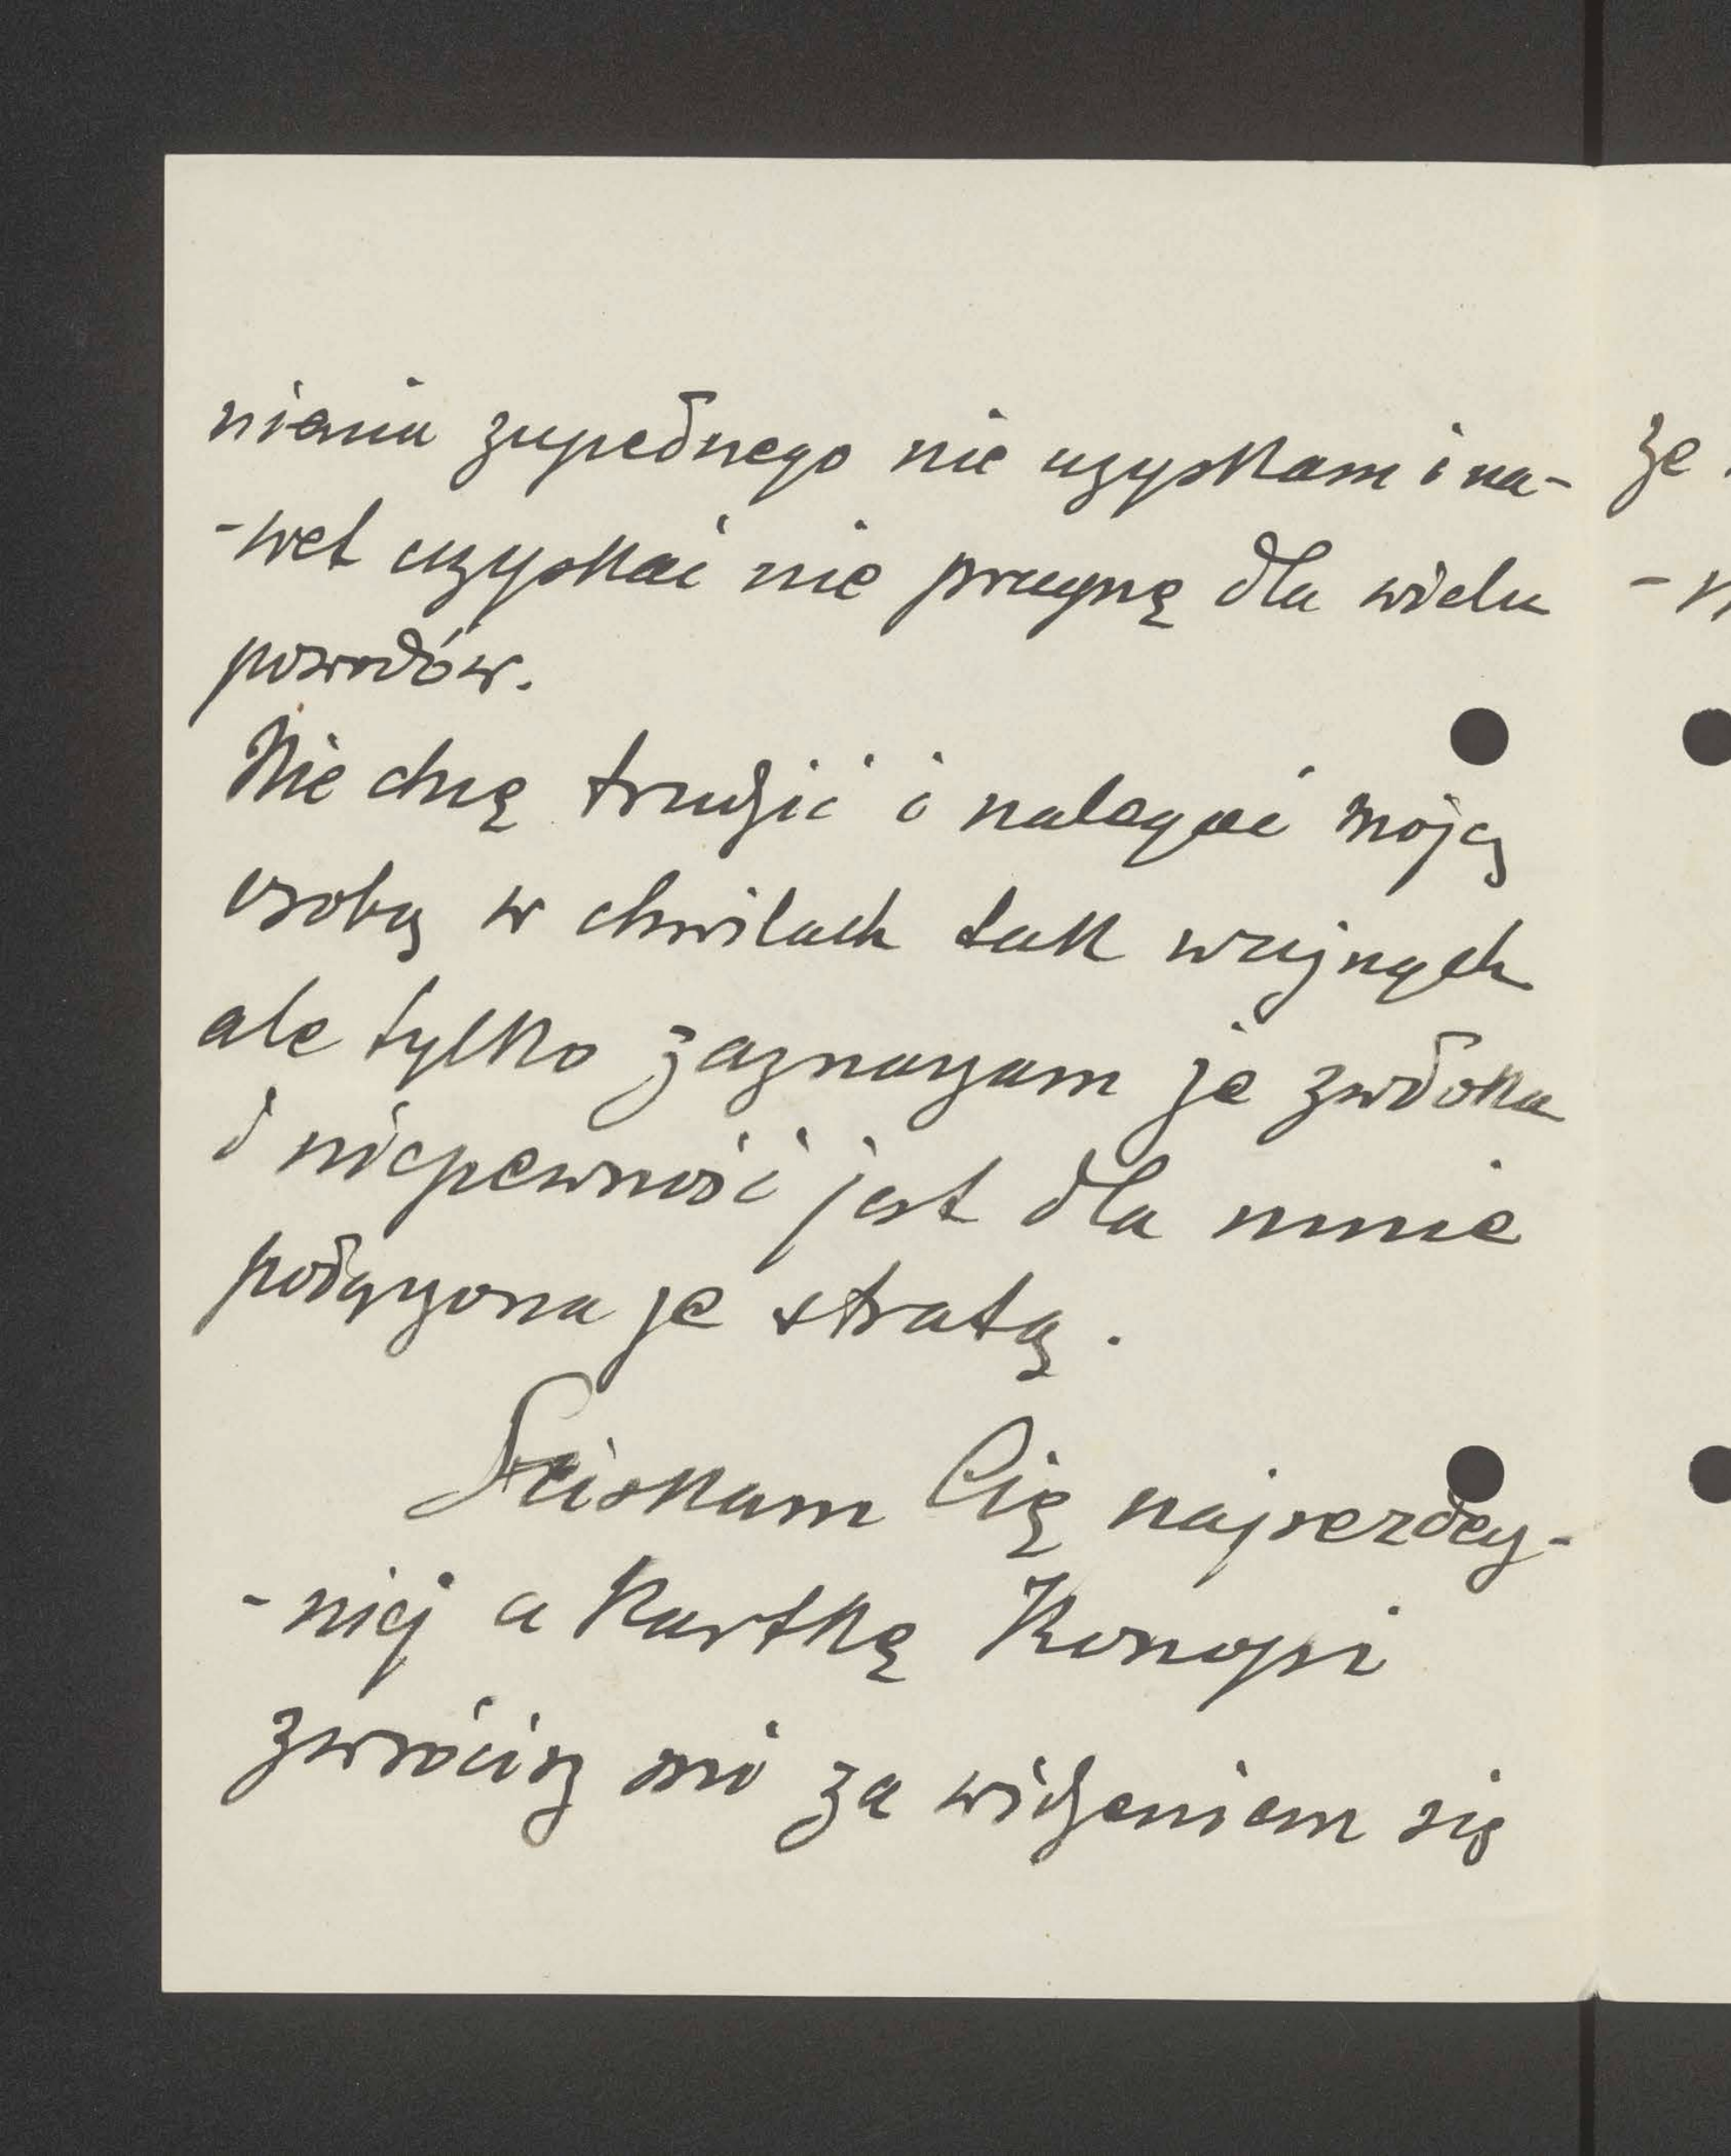 nienia zupełnego nie uzyskam i na-
-wet uzyskać nie pragnę dla wielu
powodów.
Nie chcę trudzić i nalegać moją
osobą w chwilach tak ważnych
ale tylko zaznaczam że zwłoka
i niepewność jest dla mnie
połączona ze stratą.
Ściskam Cię najserdecz-
-niej a kartkę Konopi
zwrócisz mi za widzeniem się
że